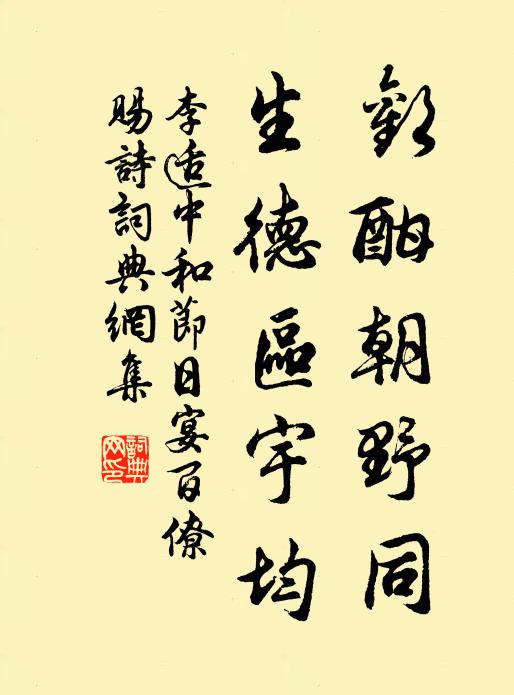 歡酣朝野同
生德區宇均
李适中和節日宴百僚
賜詩詞典網集
詞典
网印